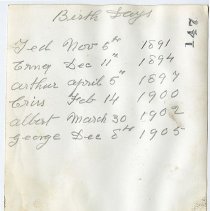 Birth Days
147
Ted Nov 6th 1891
Erna Dec 11th 1894
Arthur April 5th 1897
Criss Feb 14 1900
Albert March 30 1902
George Dec 8th 1905